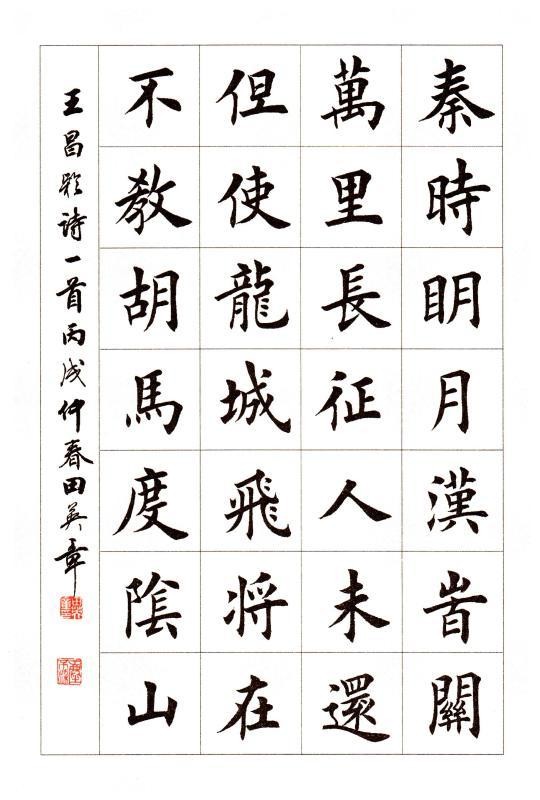 秦時明月漢旹關
萬里長征人未還
但使龍城飛將在
不教胡馬度陰山
王昌齡詩一首丙戌仲春田英章